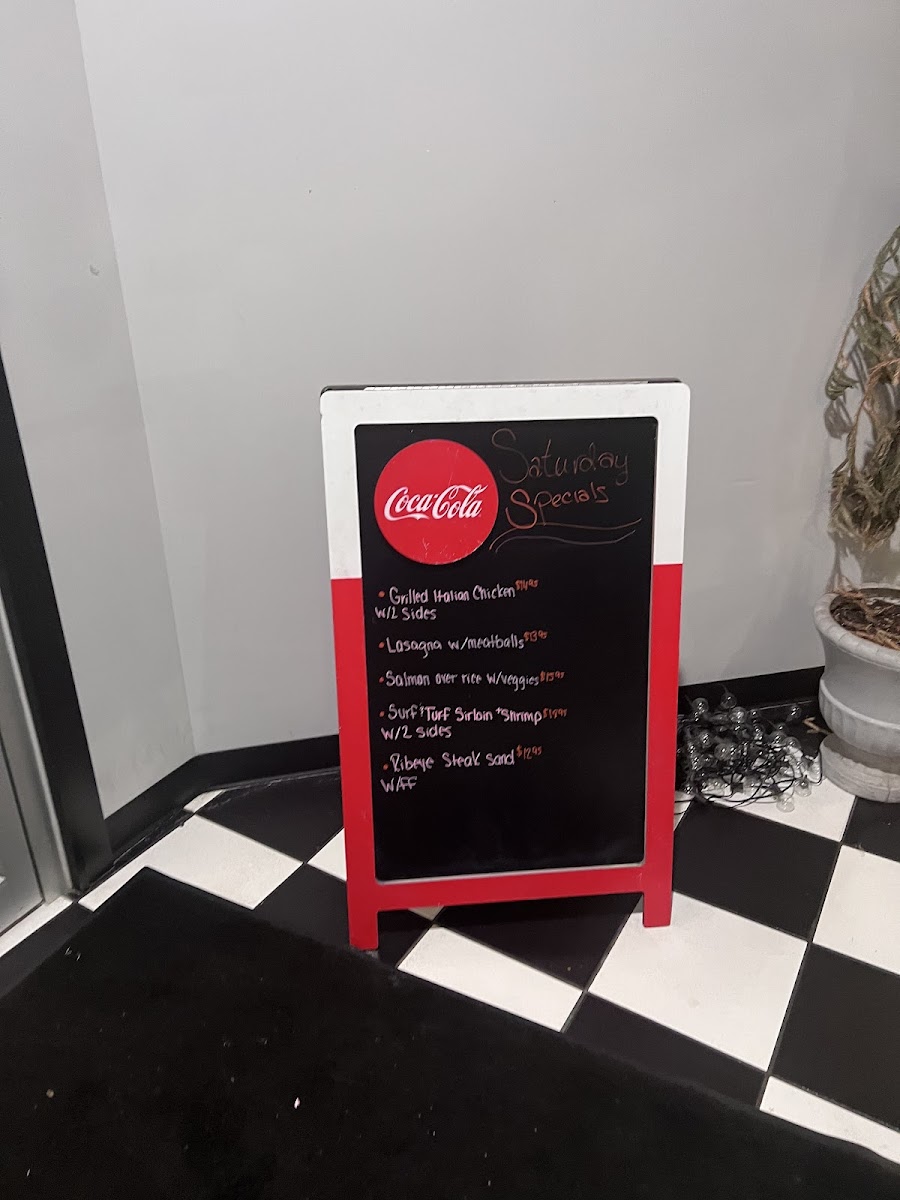 Coca-Cola
Saturday
Specials
• Grilled Italian Chicken $14.95
W/2 Sides
• Lasagna w/meatballs $13.95
• Salmon over rice w/veggies $15.95
• Surf & Turf Sirloin + Shrimp $19.95
W/2 sides
• Ribeye Steak Sand $12.95
W/FF